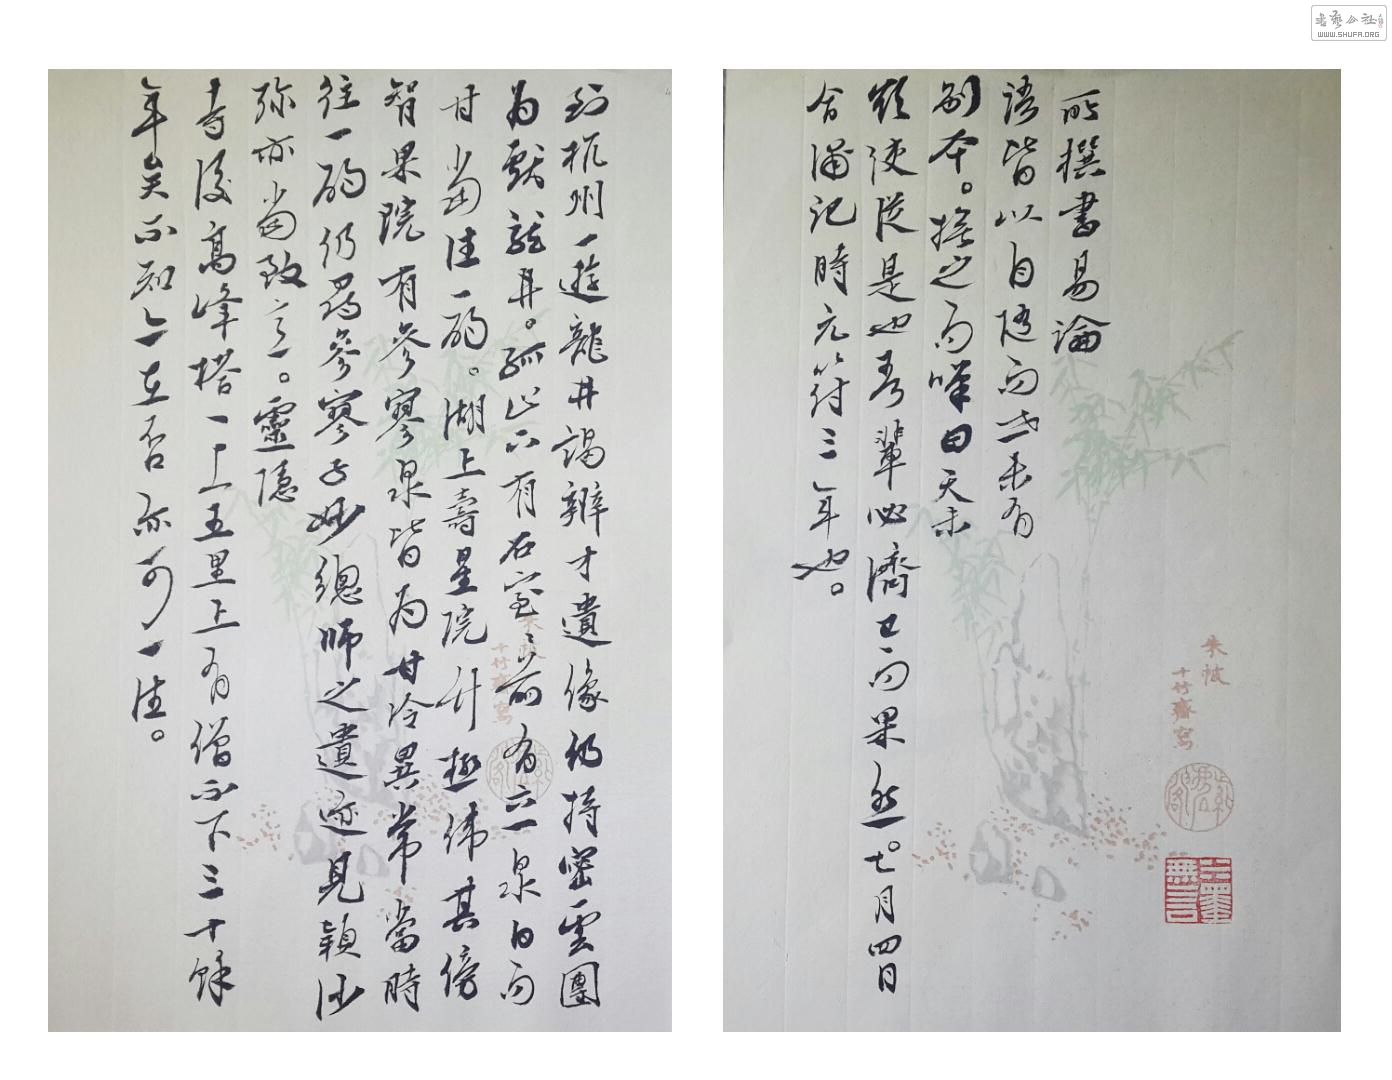 到杭州一遊龍井謁辨才遺像仍持密雲團
为獻龍井。孤山下有石室、前有六一泉白而
甘當往一酌。湖上壽星院竹極偉其傍
智果院有參寥泉皆为甘冷異常當時
往一酌仍尋參寥子妙總師之遺迹見穎沙
弥亦當致意。靈隱
寺後高峰塔一上五里上有僧不下三十餘
年矣不知今在否亦可一往。
十竹齋寫
所撰書易論
語皆以自随而世未有
别本。撫之而嘆曰天未
欲使從是也吾輩必濟已而果然。七月四日
合浦记時元符三年也。
十竹齋寫
WWW.SHUFA.ORG